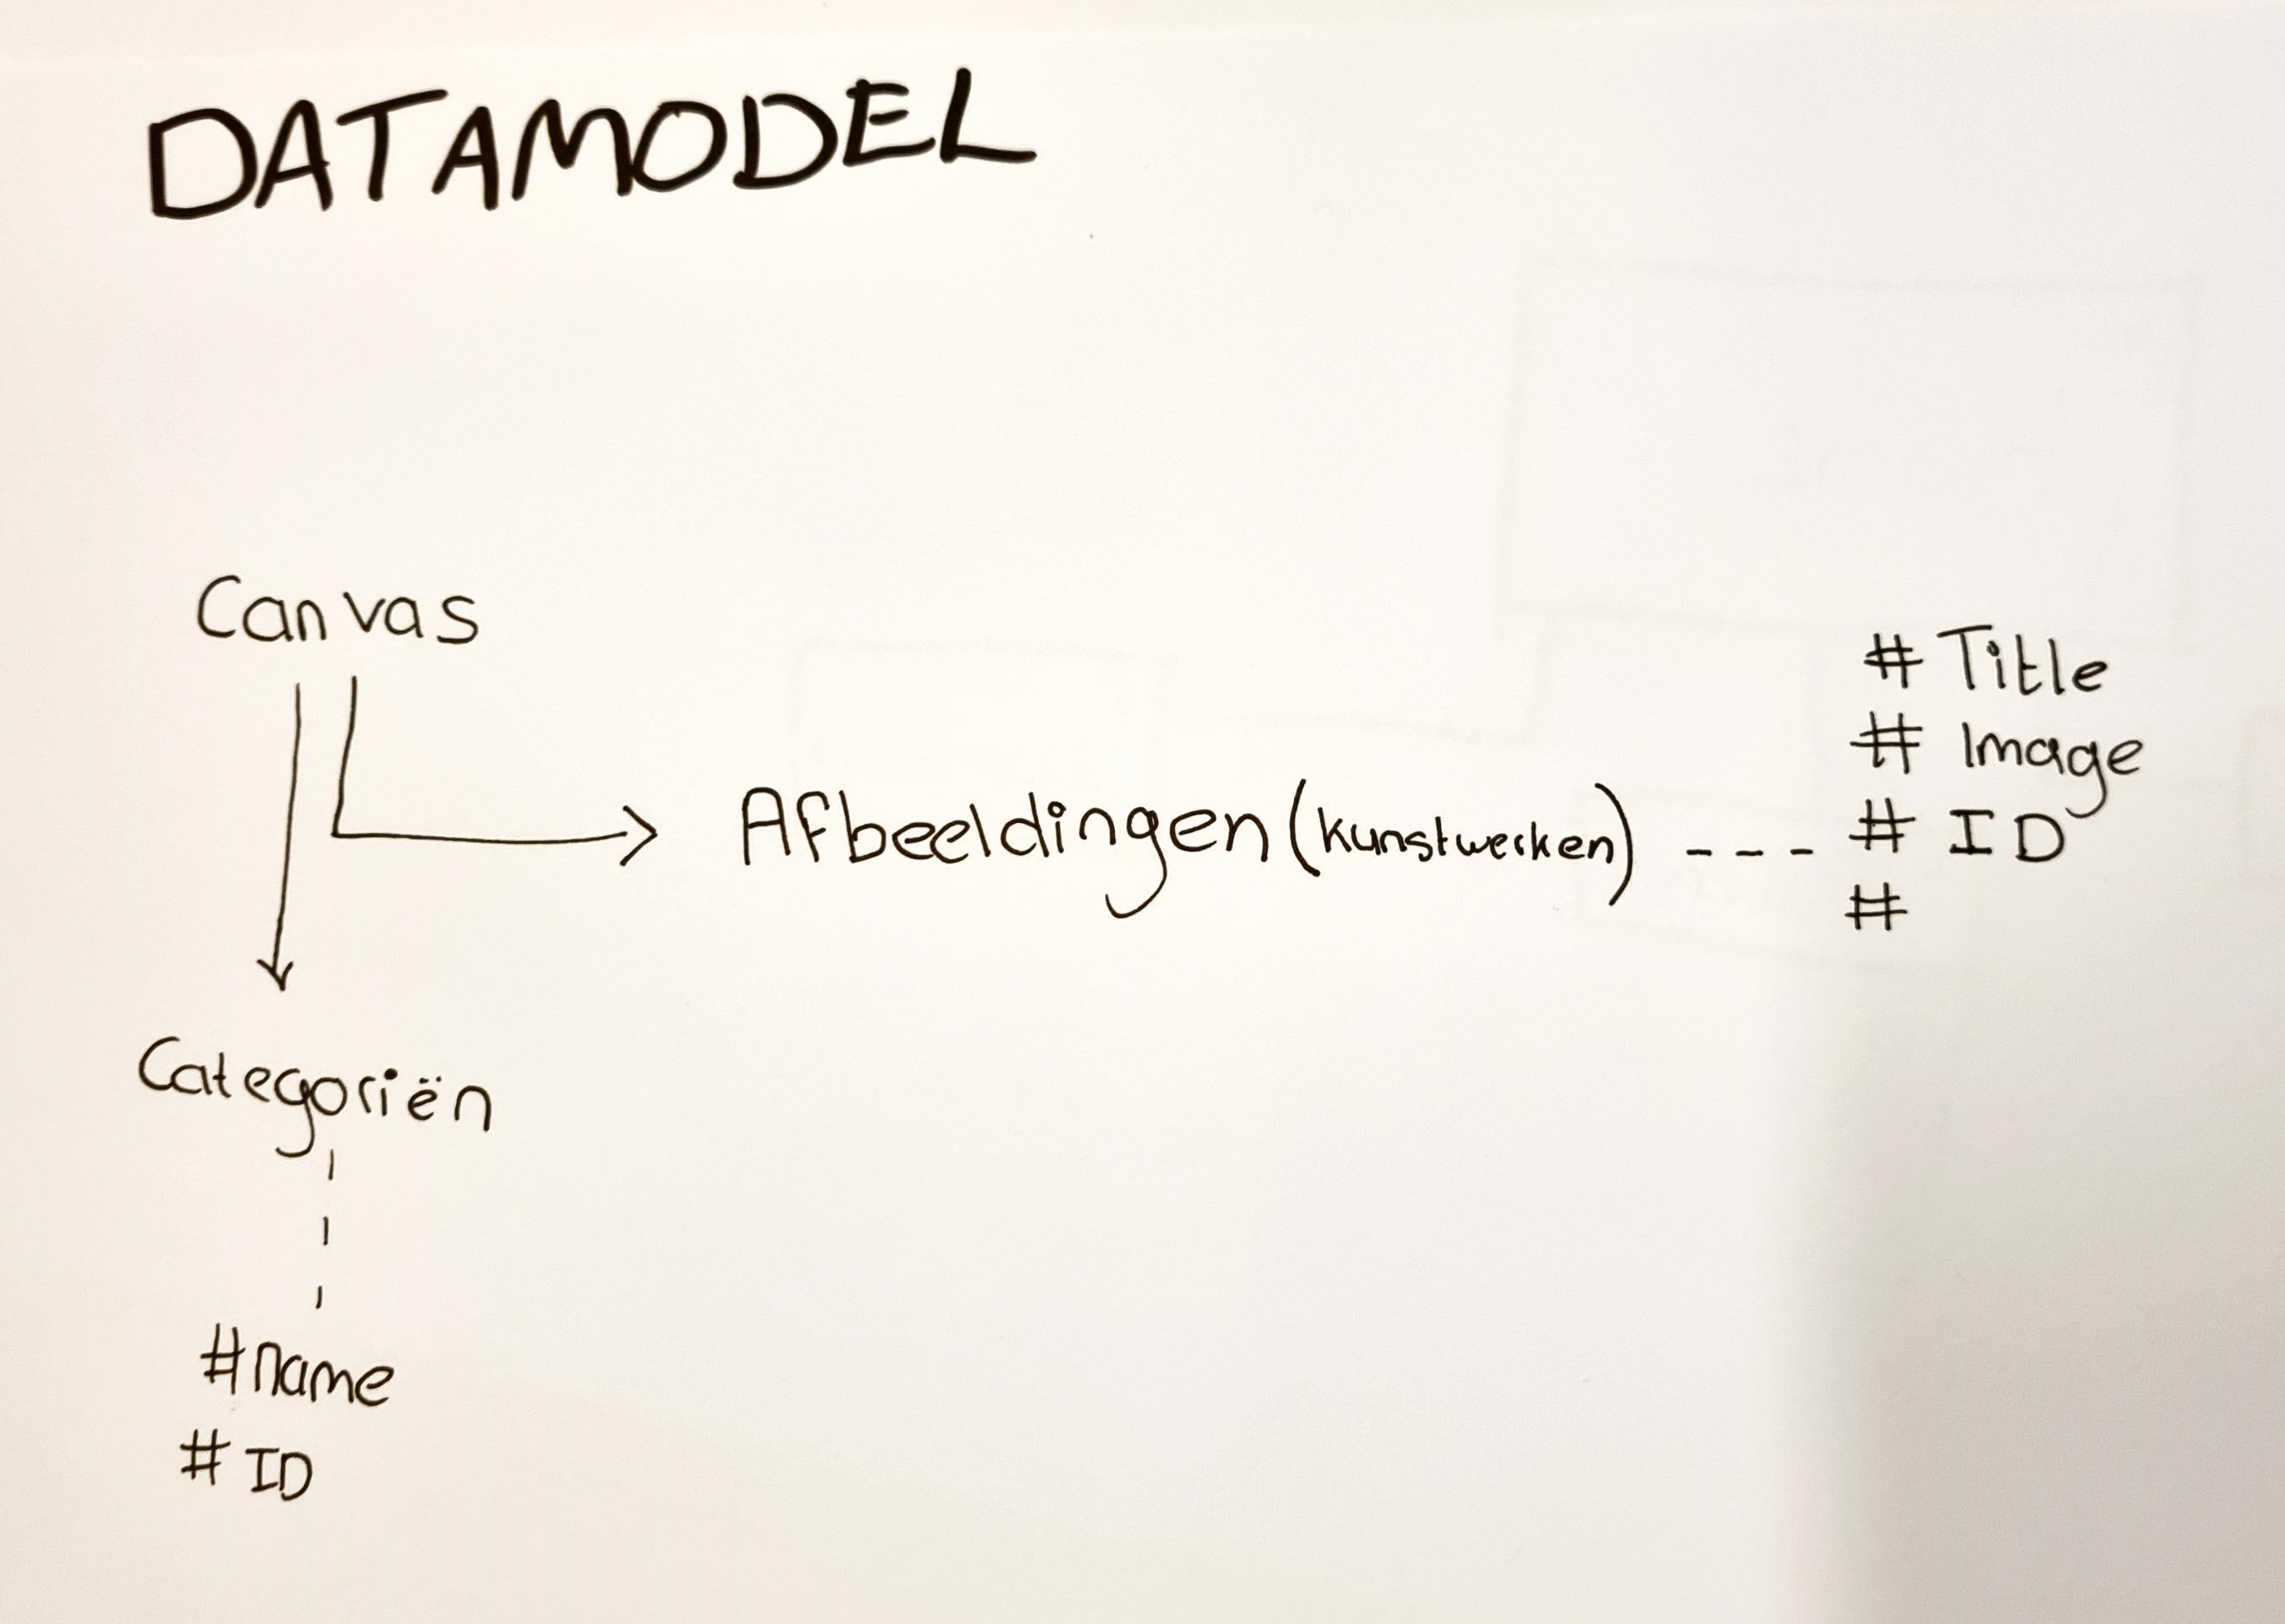 DATAMODEL
Canvas
Afbeeldingen (kunstwerken) ---
# Title
# Image
# ID
#
Categoriën
#name
# ID